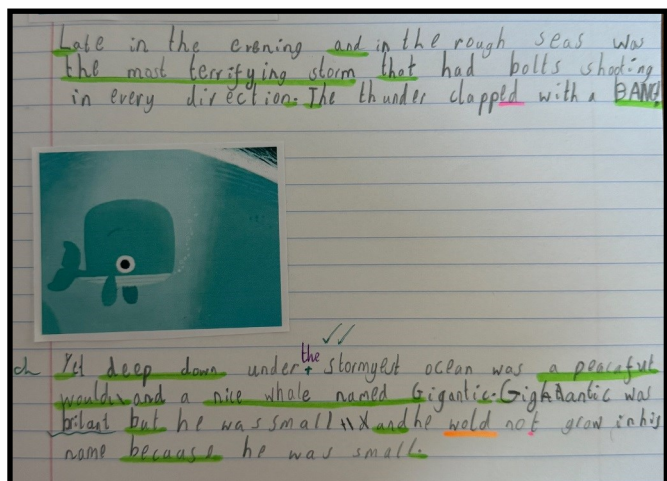 Late in the evening and in the rough seas was
the most terrifying storm that had bolts shooting
in every direction. The thunder clapped with a BANG!
the
ch Yet deep down under stormyest ocean was a peacefut
would and a nice whale named Gigantic. was
brilant but he was small and he wold not grow in his
name because he was small.